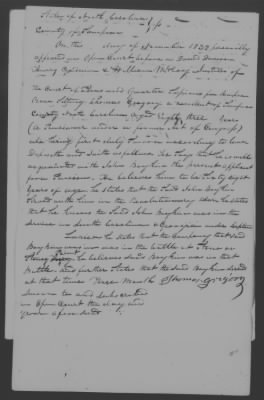 State of North Carolina
County of Sampson
On this day of November 1832 personally
appeared in Open Court before us David
and William Justices of
the Court of Pleas and Quarter Sessions for Sampson
Thomas Gregory a resident of Sampson
County North Carolina Aged Eighty three years
(a Pensioner under a former Act of Congress)
who having first duly Sworn according to law
Deposeth and Saith as follows: He Says that he is well
acquainted with John Boykin the present applicant
for Pension. He believes him to be Sixty eight
years of age he states that the Said John Boykin
Served with him in the Revolutionary War. he states
that he knows the Said John Boykin was in the
service in South Carolina & Georgia under Captain
he States that the Company that Said
Boykin was in was in the battle at Stono or
he believes Said Boykin was in that
Battle. And further States that the Said Boykin Served
at that time Three Months Thomas Gregory
Sworn to and Subscribed
in Open Court the day and
year aforesaid